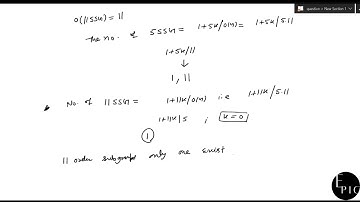 question > New Section 1
O(11SSG) = 11
The no. of 5SSG = 1+5k/O(G) = 1+5k/5.11
1+5k/11
↓
1, 11
No. of 11SSG = 1+11k/O(G) i.e 1+11k/5.11
1+11k|5 ; k=0
1
11 order subgroup only one exist.
EPIC